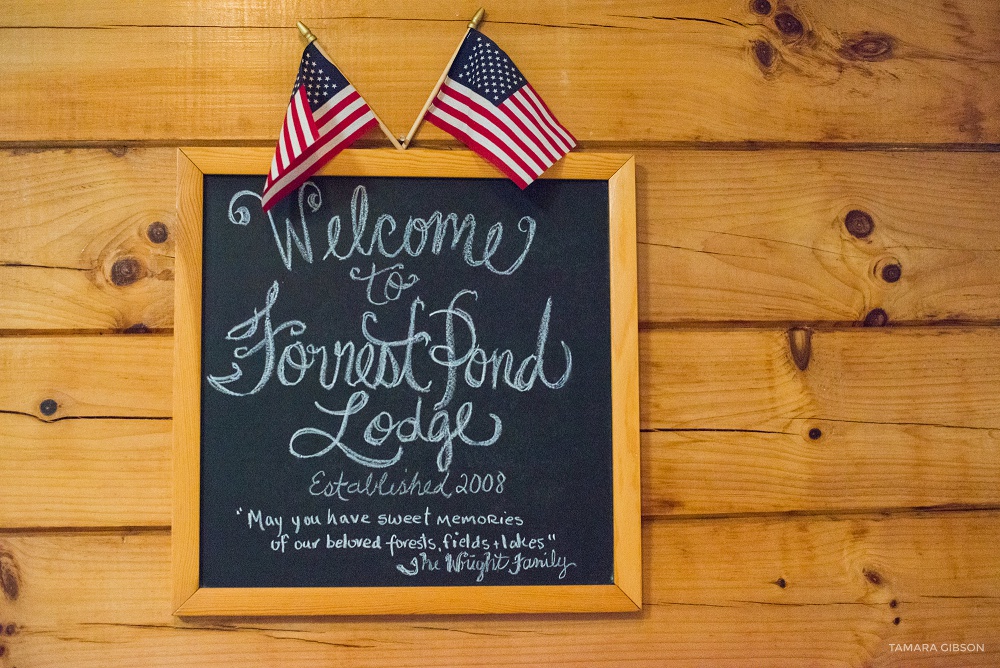 Welcome
to
Forrest Pond
Lodge
Established 2008
"May you have sweet memories
of our beloved forests, fields + lakes"
The Wright Family
TAMARA GIBSON